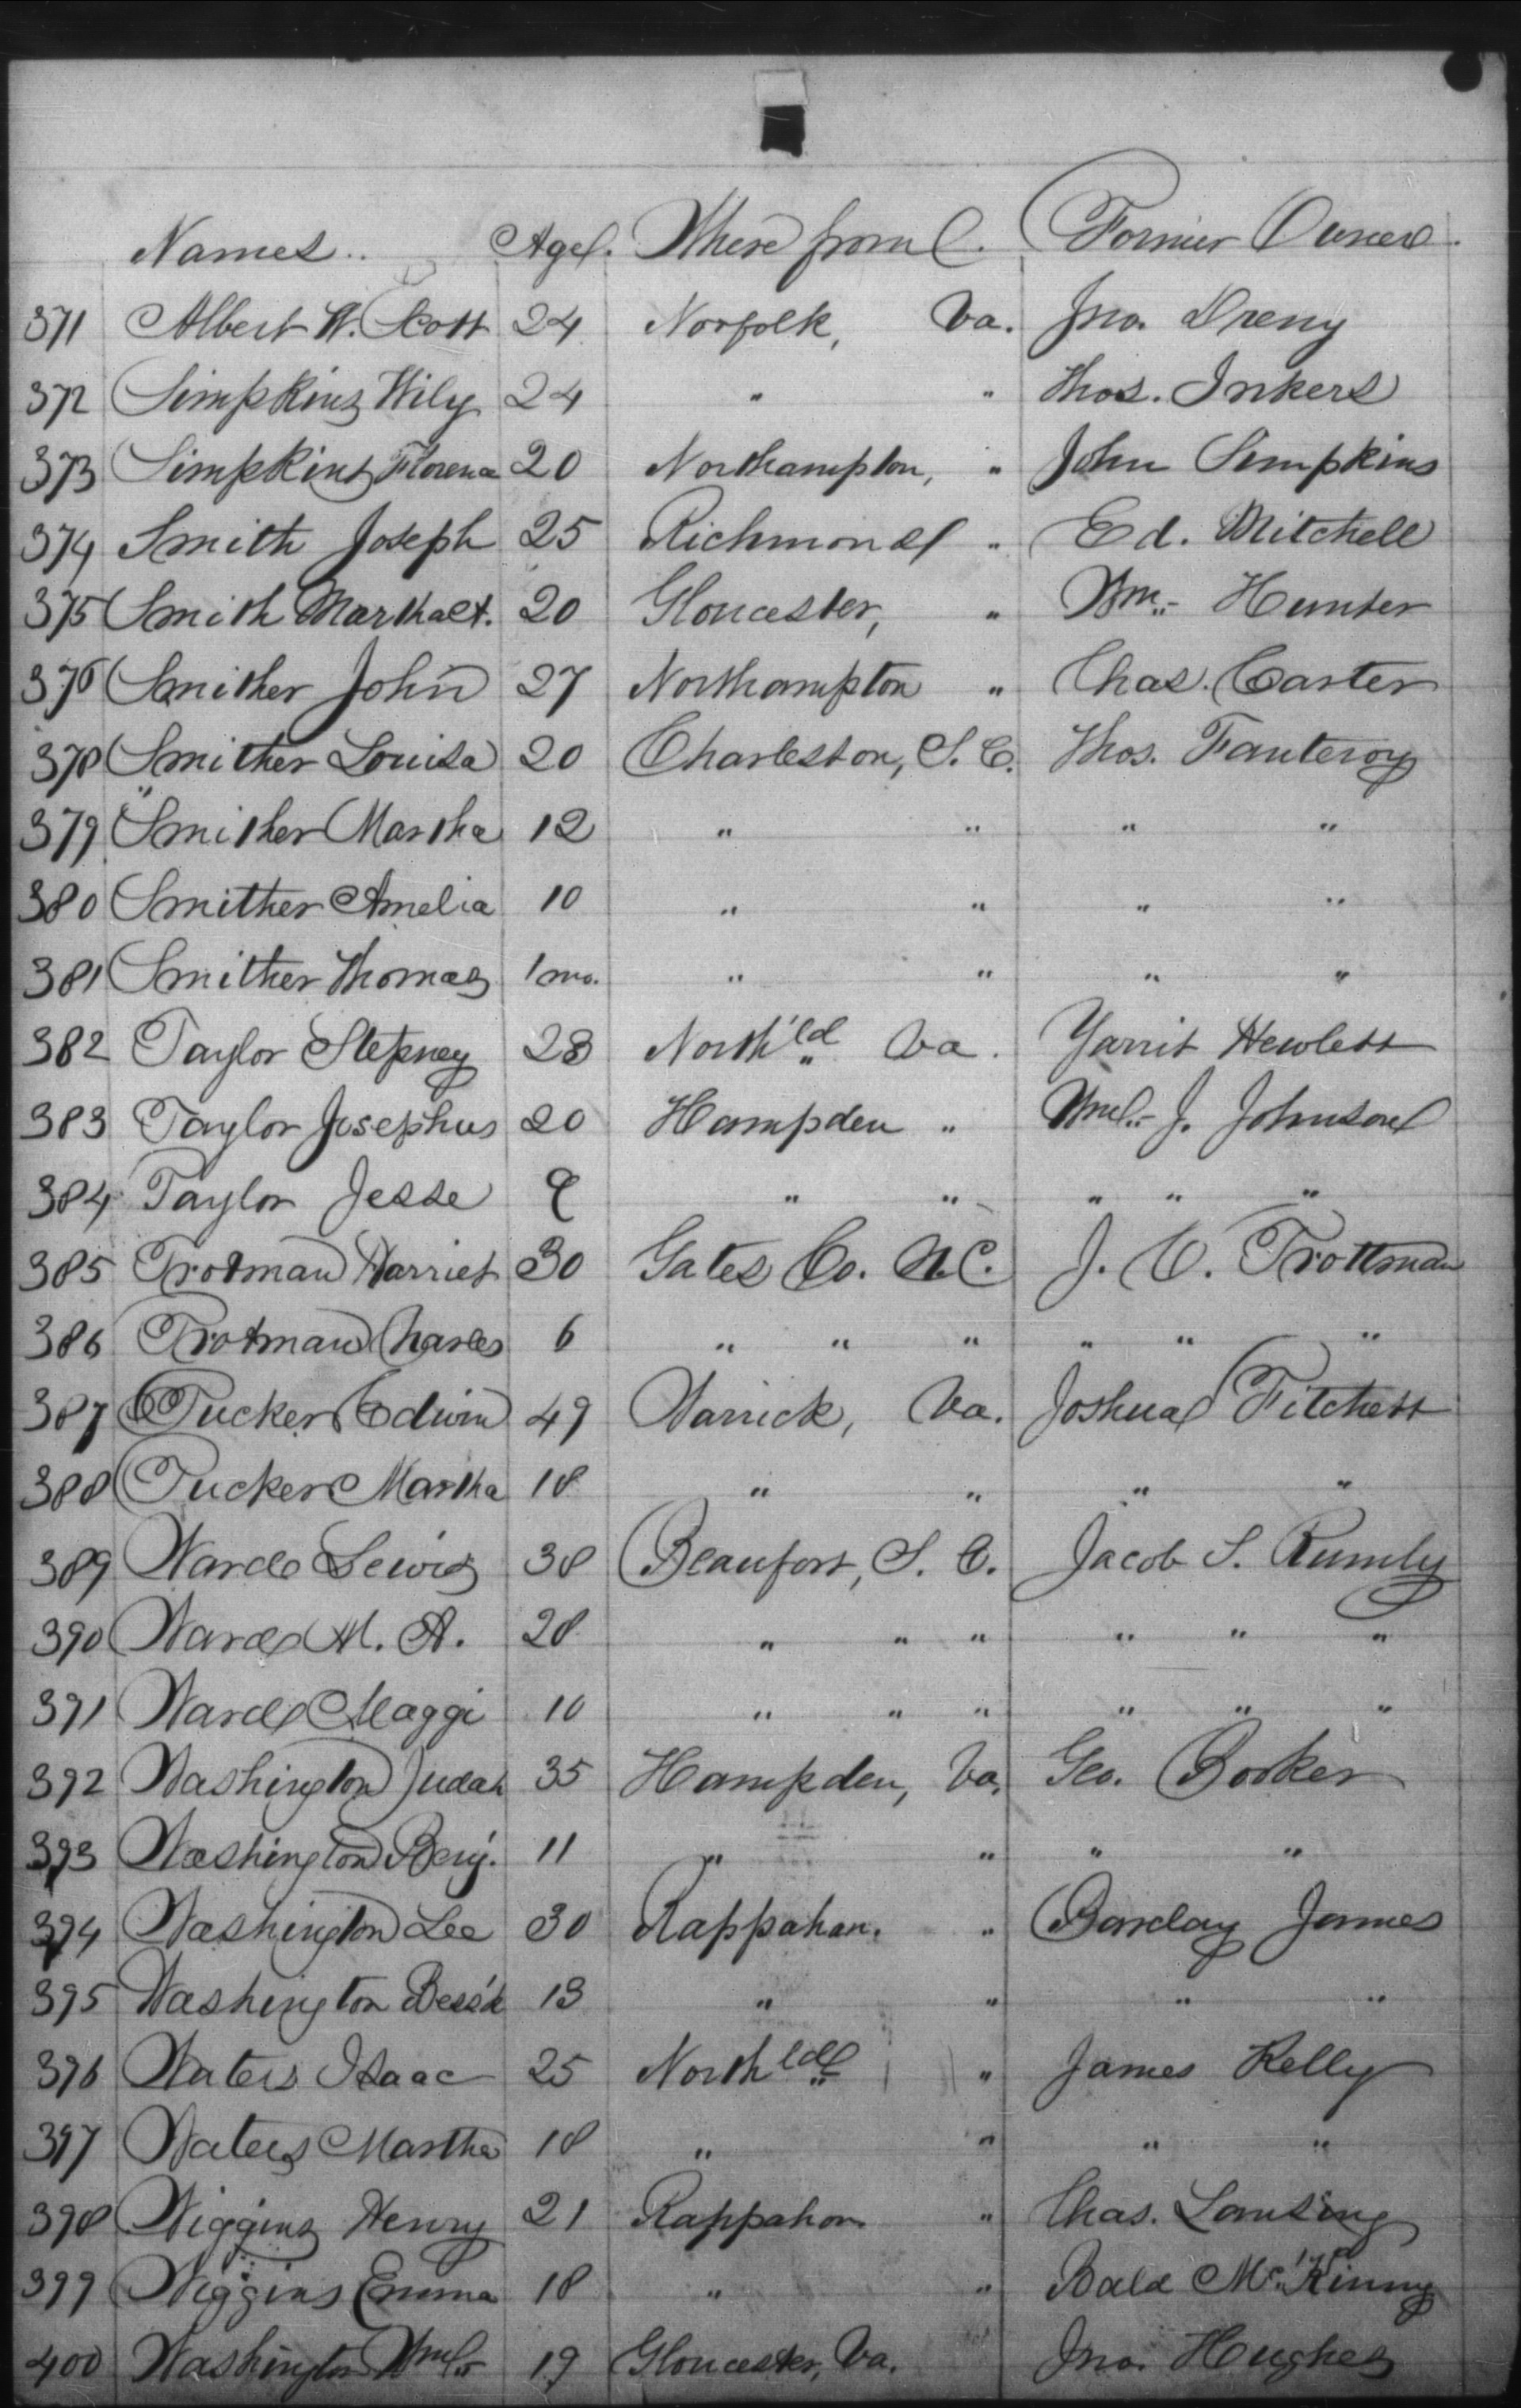 Names. Age. Where from. Former Owner.
371 Albert W. Scott 24 Norfolk, Va. Jno. Dreny
372 Simpkins Wily 24 " " Thos. Inkers
373 Simpkins Florence 20 Northampton, " John Simpkins
374 Smith Joseph 25 Richmond " Ed. Mitchell
375 Smith Martha A. 20 Gloucester, " Wm. Hunter
376 Smither John 27 Northampton " Chas. Carter
378 Smither Louisa 20 Charleston, S. C. Thos. Fauteroy
379 Smither Martha 12 " " " "
380 Smither Amelia 10 " " " "
381 Smither Thomas 1 mo. " " " "
382 Taylor Stepney 23 North'ld Va. Yarrit Hewlett
383 Taylor Josephus 20 Hampden " Wm. J. Johnson
384 Taylor Jesse 9 " " " " "
385 Trotman Harriet 30 Gates Co. N.C. J. C. Trottman
386 Trotman Charles 6 " " " " " "
387 Tucker Edwin 49 Warrick, Va. Joshua Fitchett
388 Tucker Martha 18 " " " "
389 Ward Lewis 38 Beaufort, S. C. Jacob S. Rumly
390 Ward M. A. 28 " " " " " "
391 Ward Maggi 10 " " " " " "
392 Washington Judah 35 Hampden, Va. Geo. Booker
393 Washington Benj. 11 " " " "
394 Washington Lee 30 Rappahan. " Barclay James
395 Washington 13 " " " "
396 Waters Isaac 25 Northld " James Kelly
397 Waters Martha 18 " " " "
398 Wiggins Henry 21 Rappahan " Chas. Lansing
399 Wiggins Emma 18 " " Bald McKinny
400 Washington Wm. 19 Gloucester, Va. Jno. Hughes